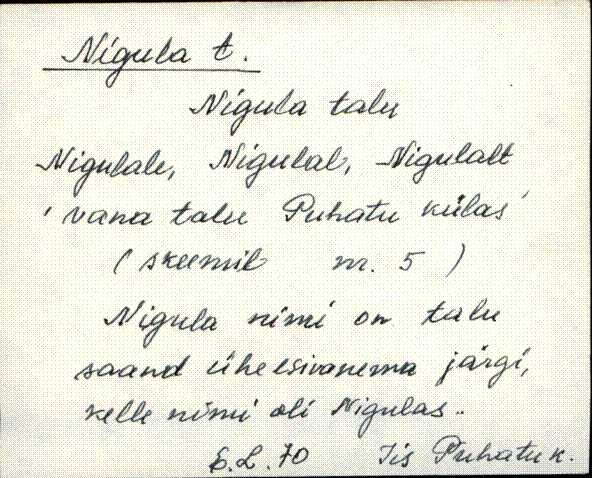 Nigula t.
Nigula talu
Nigulale, Nigulal, Nigulalt
'vana talu Puhatu külas'
(skeemil nr. 5)
Nigula nimi on talu
saand ühe esivanema järgi,
kelle nimi oli Nigulas..
E.L. 70 Iis Puhatu k.